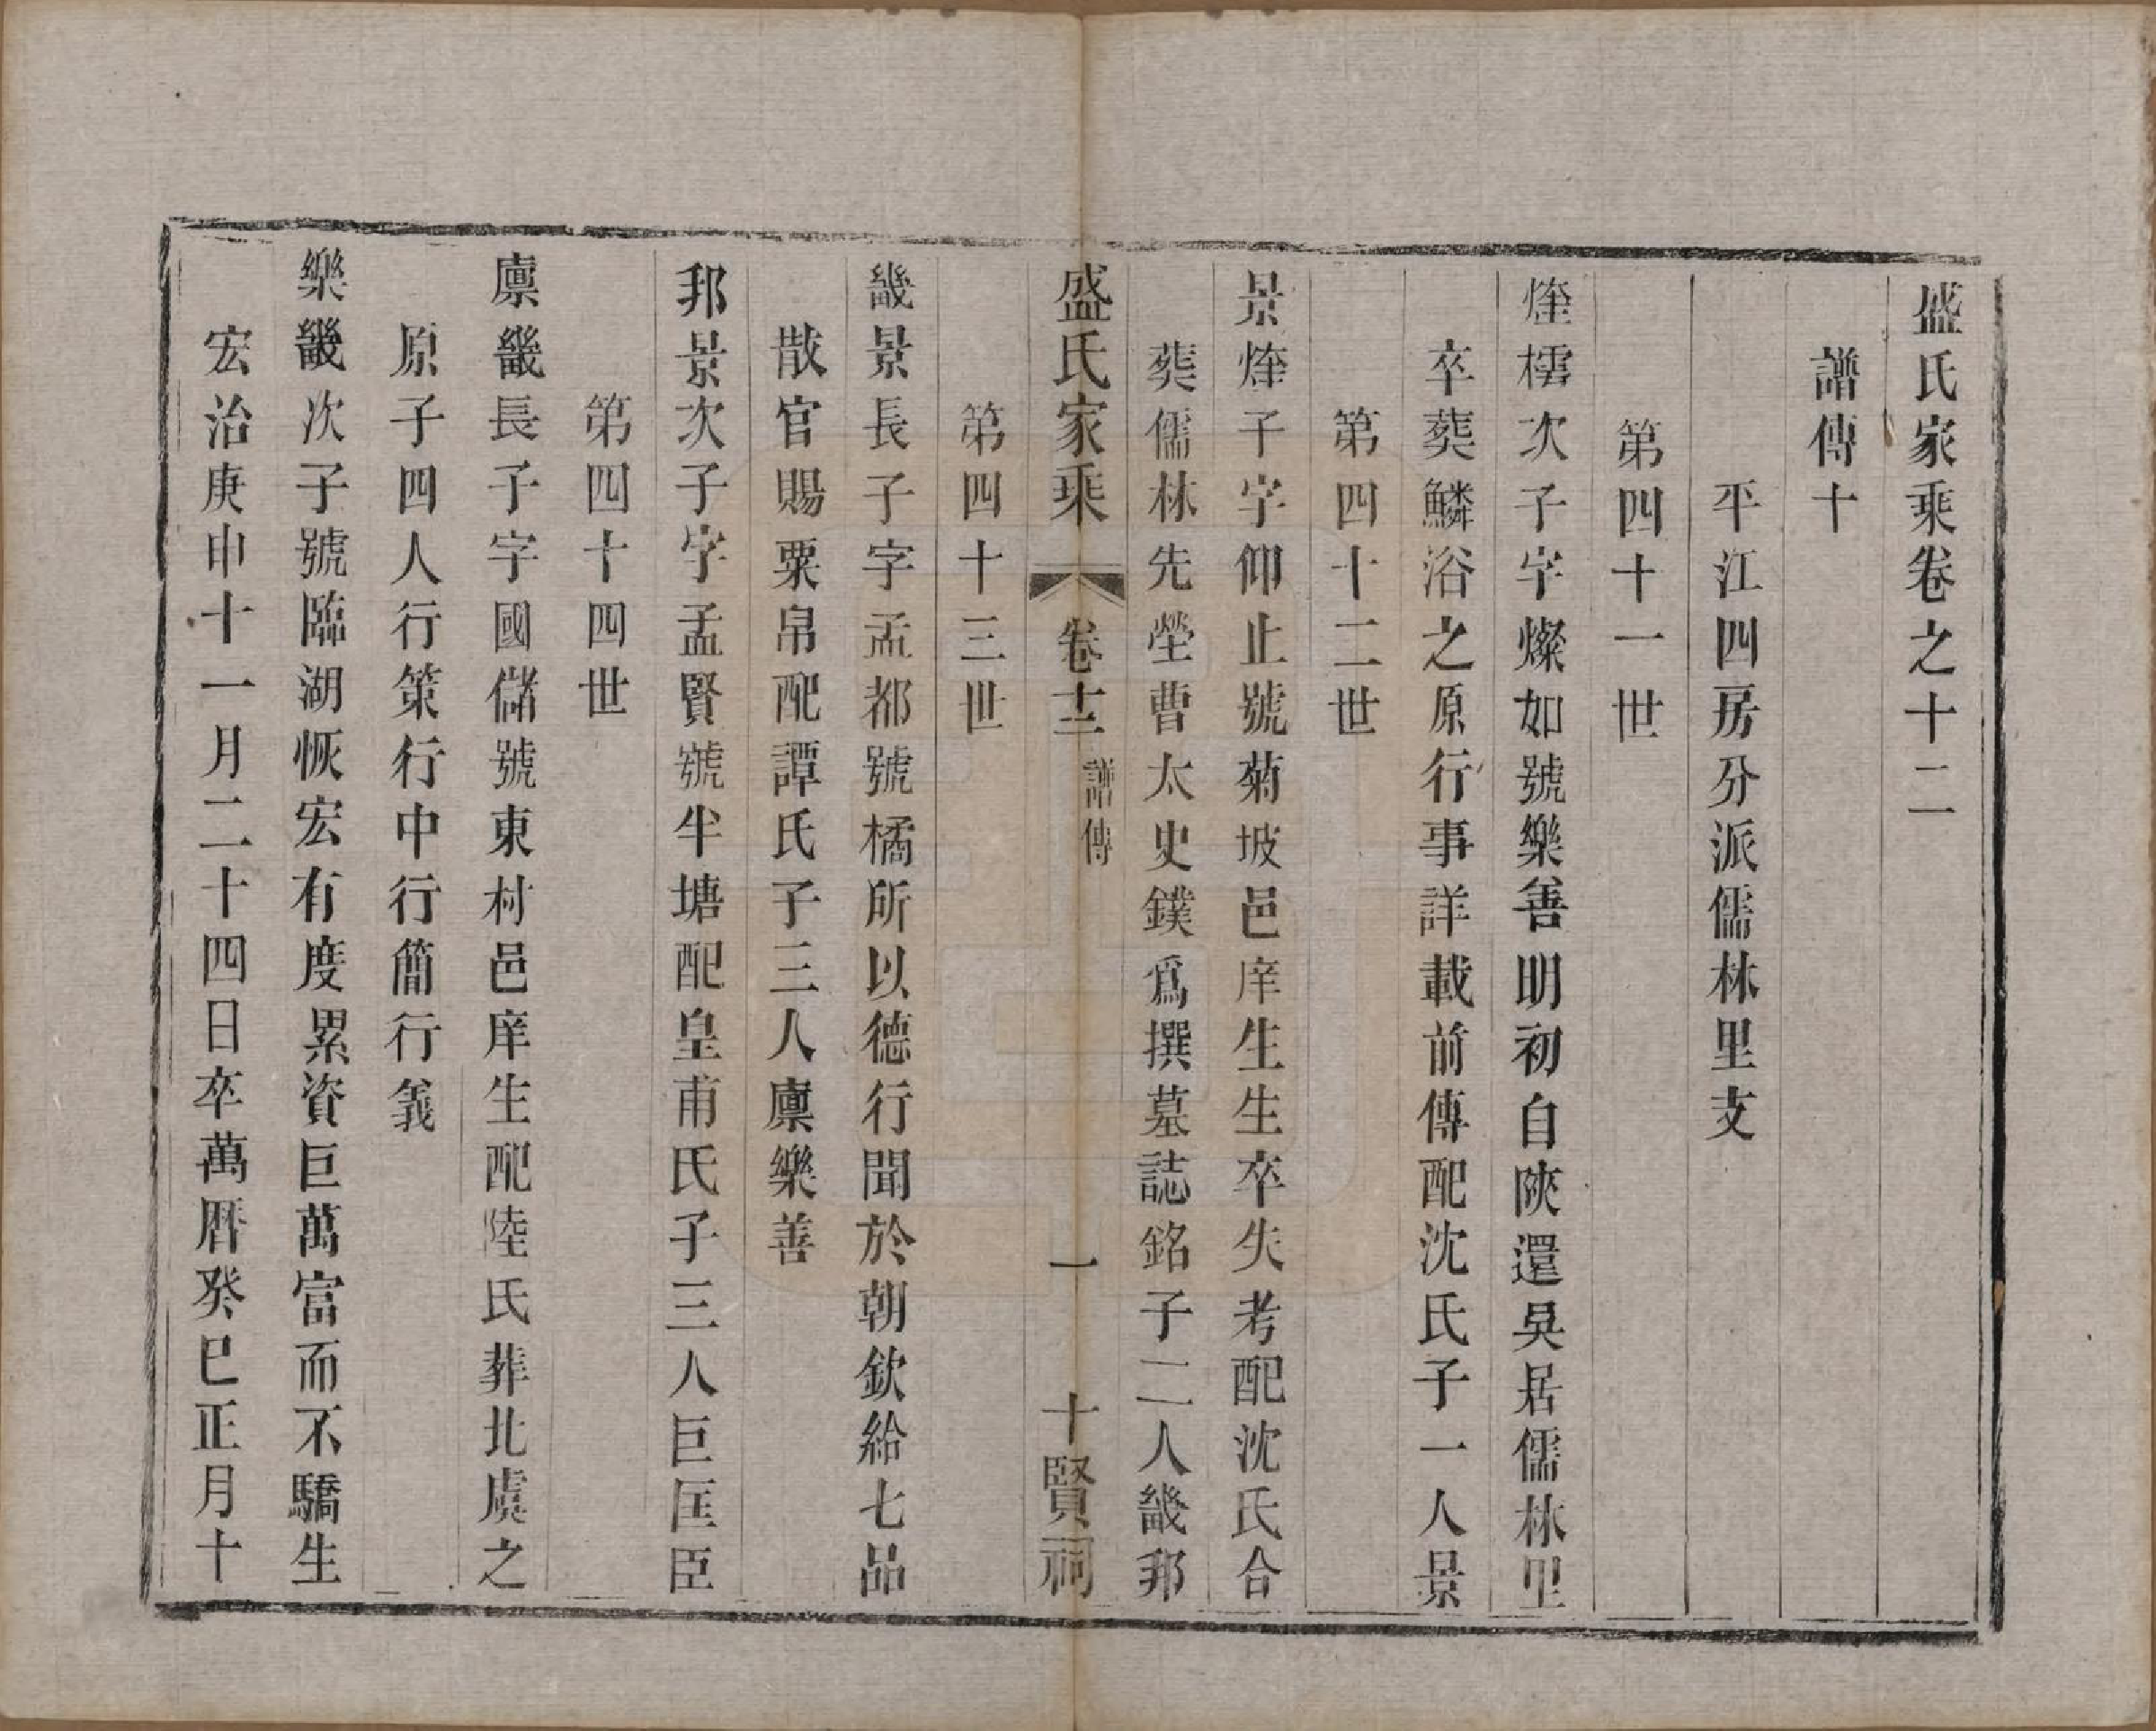 盛氏家乘卷之十二
譜傳十
平江四房分派儒林里支
第四十一世
燑樰次子字燦如號樂善明初自陝還吳居儒林里
卒葬鱗浴之原行事詳載前傳配沈氏子一人景
第四十二世
景子字仰止號菊坡邑庠生生卒失考配沈氏合
葬儒林先塋曹太史鏷爲撰墓誌銘子二人畿邦
盛氏家乘
卷十二
譜傳
一
十賢祠
第四十三世
畿景長子字孟都號橘所以德行聞於朝欽給七品
散官賜粟帛配譚氏子三人廪樂善
邦景次子字孟賢號半塘配皇甫氏子三人巨匡臣
第四十四世
廪畿長子字國儲號東村邑庠生配陸氏葬北虞之
原子四人行策行中行簡行義
樂畿次子號臨湖恢宏有度累資巨萬富而不驕生
宏治庚申十一月二十四日卒萬曆癸巳正月十